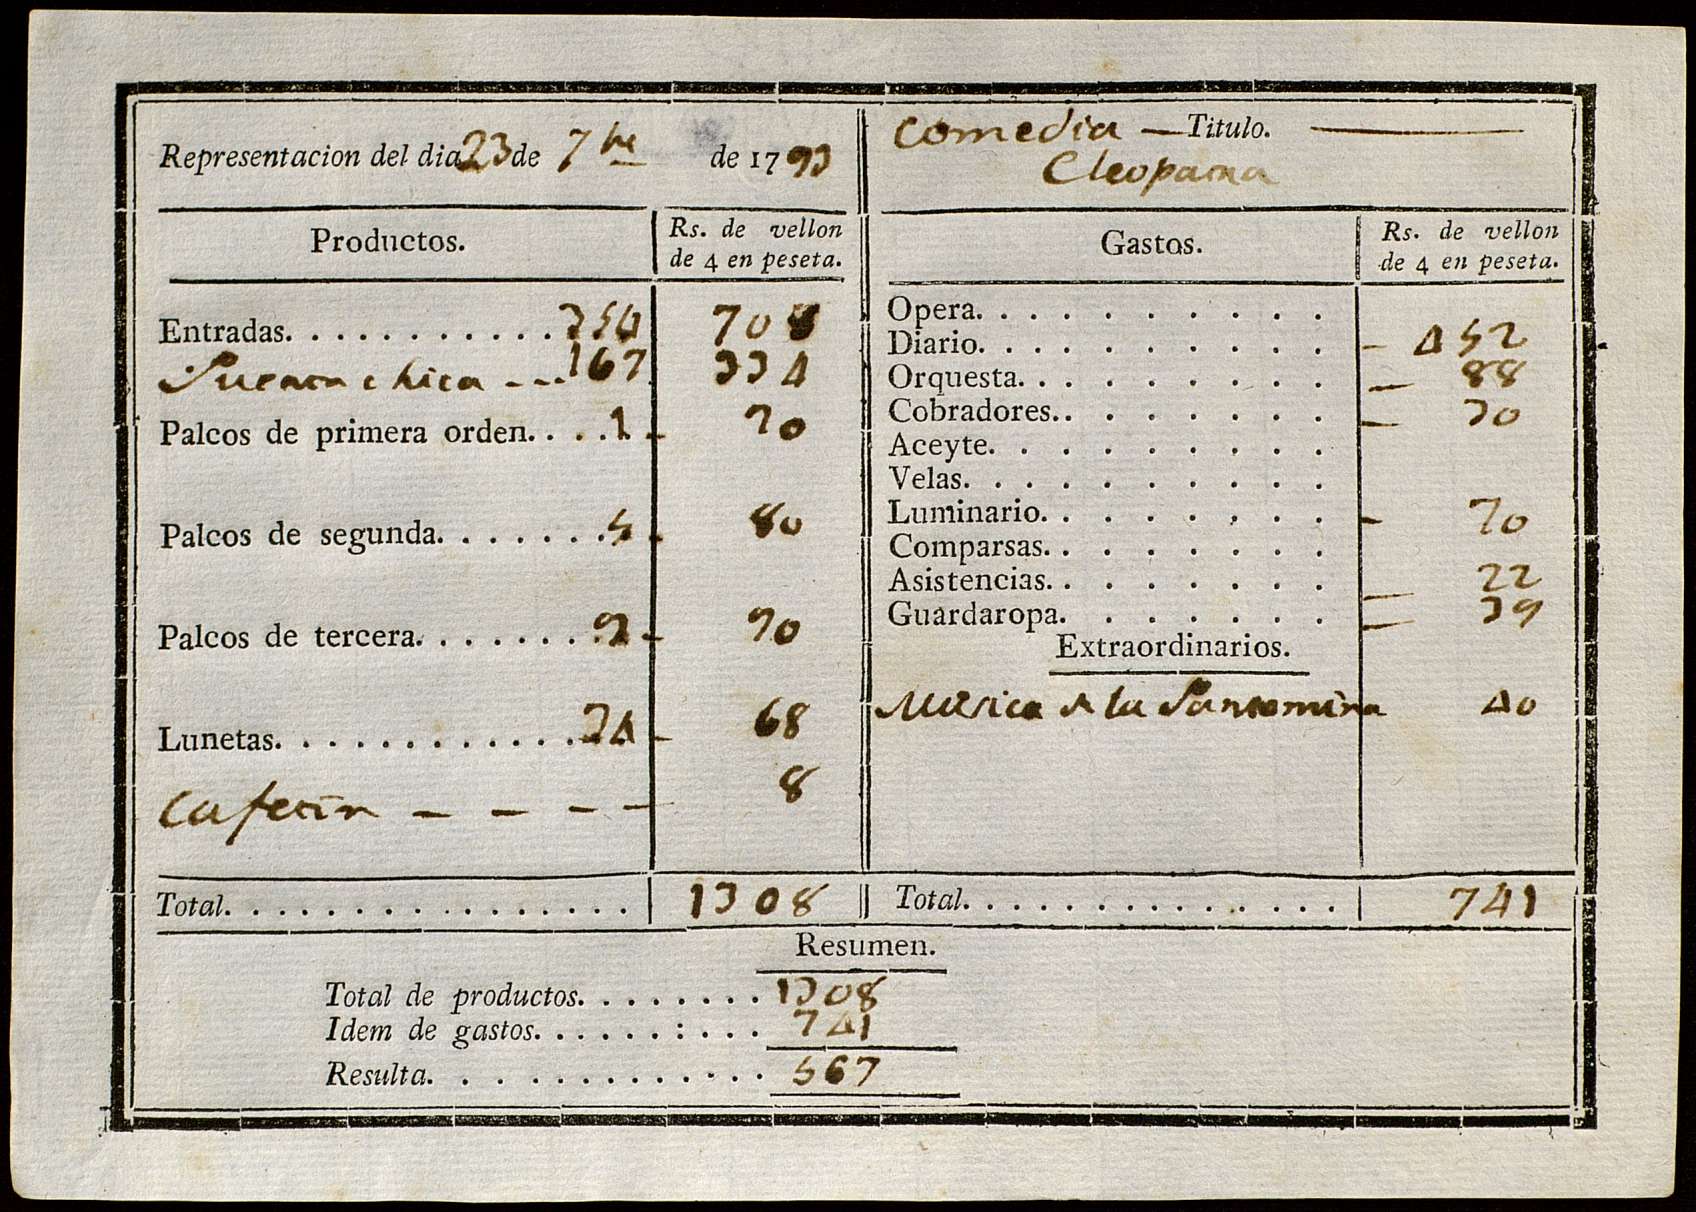 Representacion del dia 23 de 7bre de 1793
Comedia — Titulo. —
Cleopatra
Productos. Rs. de vellon de 4 en peseta.
Entradas. . . . . . . . . . . . 354 708
Puerta chica - - . . 167 334
Palcos de primera orden. . . . 1 - 20
Palcos de segunda. . . . . . . . 5 - 80
Palcos de tercera. . . . . . . . 9 - 90
Lunetas. . . . . . . . . . . . . 34 - 68
Cafetin - - - - 8
Total. . . . . . . . . . . . . . . . . 1308
Gastos. Rs. de vellon de 4 en peseta.
Opera. . . . . . . . . .
Diario. . . . . . . . . . - 452
Orquesta. . . . . . . . . - 88
Cobradores. . . . . . . . - 30
Aceyte. . . . . . . . . .
Velas. . . . . . . . . .
Luminario. . . . . . . . - 70
Comparsas. . . . . . . .
Asistencias. . . . . . . . - 22
Guardaropa. . . . . . . - 39
Extraordinarios.
Musica de la Pantomima 40
Total. . . . . . . . . . . . . . . . 741
Resumen.
Total de productos. . . . . . . . 1308
Idem de gastos. . . . . . : . . . 741
Resulta. . . . . . . . . . . . . . 567